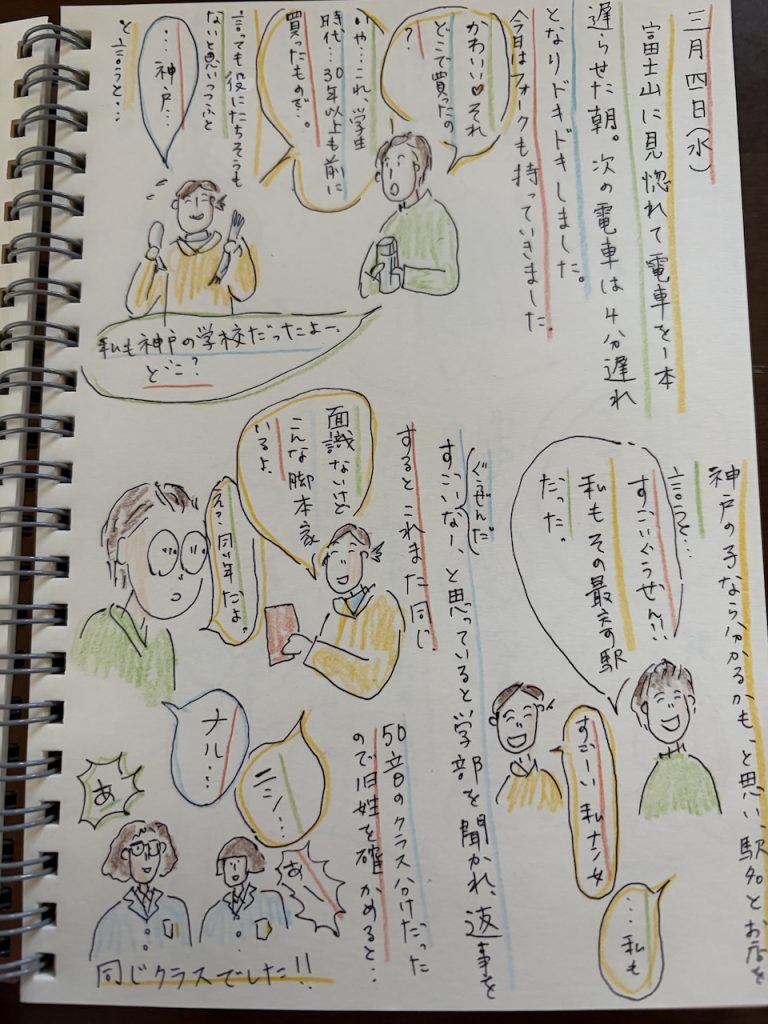 三月四日(水)
富士山に見惚れて電車を一本
遅らせた朝。次の電車は4分遅れ
となりドキドキしました。
今日はフォークも持っていきました。
かわいい♥それ
どこで買ったの
?
いや…これ、学生
時代…30年以上も前に
買ったもので…。
言っても役にたちそうも
ないと思いつつふと
…神戸…
と言うと…
私も神戸の学校だったよー、
どこ?
神戸の子なら分かるかも、と思い、駅名とお店を
言うと…
すごいぐうぜん!!
私もその最寄駅
だった。
すごーい私ナン女
…私も
ぐうぜんだ。
すごいなー、と思っていると学部を聞かれ、返事を
するとこれまた同じ
面識ないけど
こんな脚本家
いるよ。
え?同い年だよ。
50音のクラス分けだった
ので旧姓を確かめると…
ニシ…
ナル…
あ
あ
同じクラスでした!!